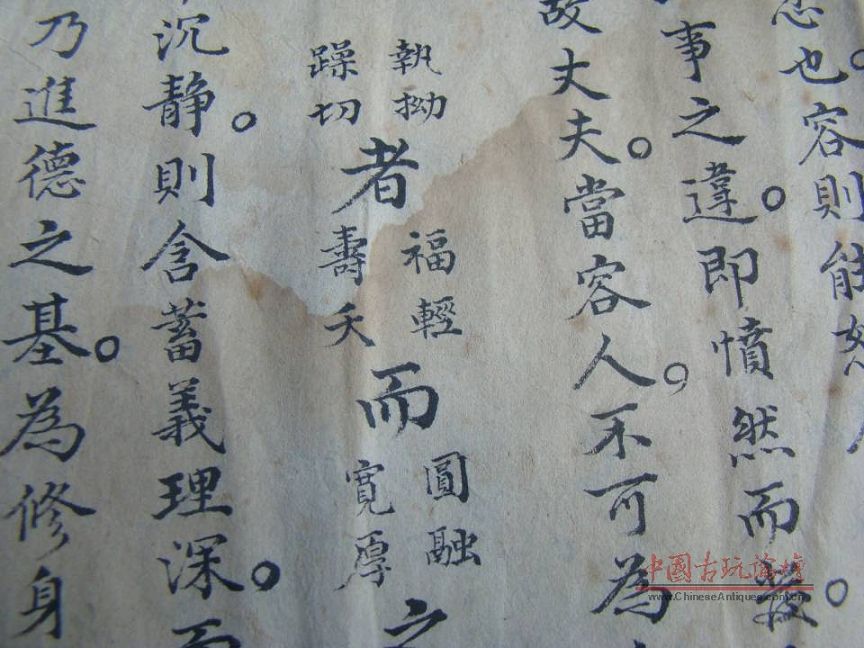 也。容則能
事之違。即憤然而發。
故丈夫。當容人。不可為
執拗
躁切
者
福輕
壽夭
而
圓融
寬厚
之
沉静。則含蓄義理深。而
乃進德之基。為修身
中國古玩論壇
www.ChineseAntiques.com.cn